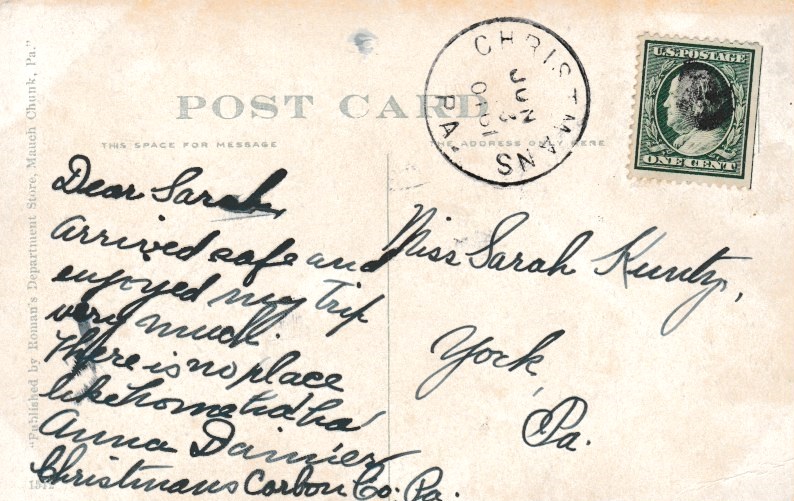 POST CARD
THIS SPACE FOR MESSAGE
THE ADDRESS ONLY HERE
"Published by Roman's Department Store, Mauch Chunk, Pa."
CHRISTMANS
JUN
3
1910
PA.
U.S. POSTAGE
ONE CENT
Dear Sarah,
Arrived safe and
enjoyed my trip
very much.
There is no place
like home ha! ha!
Anna Damier
Christmans Carbon Co. Pa.
Miss Sarah Kuntz,
York,
Pa.